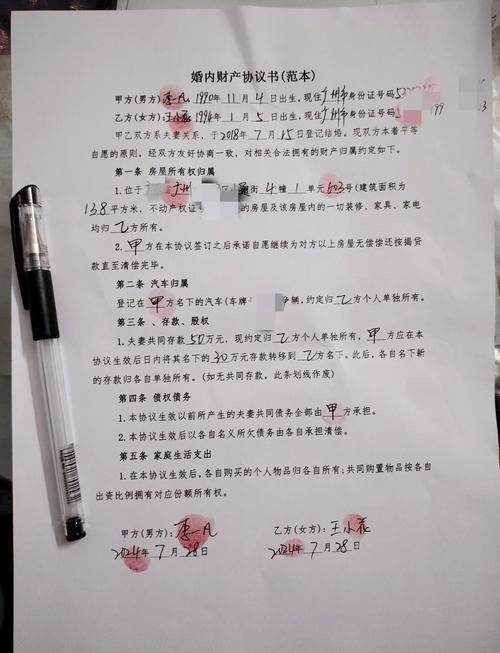 婚内财产协议书(范本)
甲方(男方):李一凡,1990年11月4日出生,现住广州市身份证号码5
乙方(女方):王小蕊,1994年1月5日出生,现住广州市身份证号码 199
甲乙双方系夫妻关系,于2018年7月15日登记结婚。现双方本着平等
自愿的原则,经双方友好协商一致,对相关合法拥有的财产归属约定如下。
第一条 房屋所有权归属
1.位于 广州 区 街4幢1单元603号(建筑面积为
138平方米,不动产权证 的房屋及该房屋内的一切装修、家具、家电
均归乙方所有。
2.甲方在本协议签订之后承诺自愿继续为对方以上房屋无偿偿还按揭贷
款直至清偿完毕。
第二条 汽车归属
登记在甲方名下的汽车(车牌 辆,约定归乙方个人单独所有。
第三条 、存款、股权
1.夫妻共同存款50万元,现约定归乙方个人单独所有,甲方应在本
协议生效后日内将其名下的30万元存款转移到乙方名下。此后,各自名下新
的存款归各自单独所有。(如无共同存款,此条划线作废)
第四条 债权债务
1.本协议生效以前所产生的夫妻共同债务全部由甲方承担。
2.本协议生效后以各自名义所欠债务由各自承担清偿。
第五条 家庭生活支出
1.在本协议生效后,各自购买的个人物品归各自所有;共同购置物品按各自
出资比例拥有对应份额所有权。
甲方(男方):李一凡 乙方(女方):王小蕊
2024年7月28日 2024年7月28日